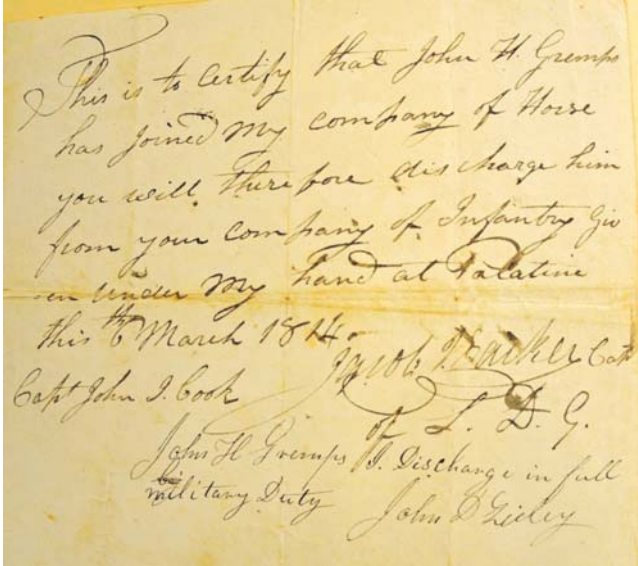 This is to Certify that John H. Gremps
has joined my company of Horse
you will therefore discharge him
from your company of Infantry Giv
en under my hand at Palatine
this 6th March 1814.
Jacob Capt
Capt John I. Cook
of L. D. G.
John H Gremps Discharge in full
military Duty
John D